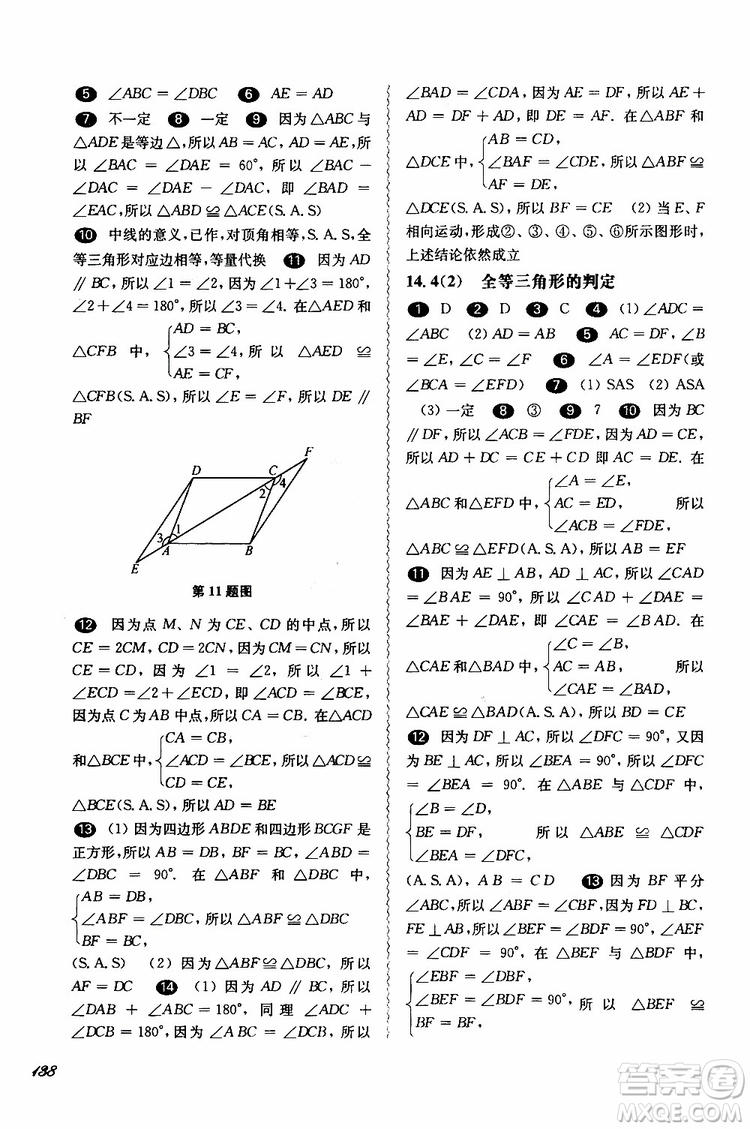 ❺ ∠ABC = ∠DBC ❻ AE = AD
❼ 不一定 ❽ 一定 ❾ 因为△ABC 与
△ADE 是等边△,所以 AB = AC, AD = AE,所
以 ∠BAC = ∠DAE = 60°, 所以 ∠BAC −
∠DAC = ∠DAE − ∠DAC, 即 ∠BAD =
∠EAC,所以△ABD ≌△ACE(S. A. S)
❿ 中线的意义,已作,对顶角相等,S. A. S,全
等三角形对应边相等,等量代换 ⓫ 因为 AD
∥ BC,所以∠1 = ∠2, 因为∠1+∠3 = 180°,
∠2+∠4 = 180°,所以∠3 = ∠4. 在△AED 和
AD = BC,
△CFB 中, ∠3 = ∠4, 所以 △AED ≌
AE = CF,
△CFB(S. A. S),所以∠E = ∠F, 所以 DE ∥
BF
D C F
2 4
3 1
E A B
第 11 题图
⓬ 因为点 M、N 为 CE、CD 的中点,所以
CE = 2CM, CD = 2CN, 因为 CM = CN, 所以
CE = CD, 因为 ∠1 = ∠2, 所以 ∠1 +
∠ECD = ∠2 + ∠ECD, 即 ∠ACD = ∠BCE,
因为点 C 为 AB 中点,所以 CA = CB. 在△ACD
CA = CB,
和△BCE 中, ∠ACD = ∠BCE, 所以△ACD ≌
CD = CE,
△BCE(S. A. S),所以 AD = BE
⓭ (1) 因为四边形 ABDE 和四边形 BCGF 是
正方形,所以 AB = DB, BF = BC, ∠ABD =
∠DBC = 90°. 在 △ABF 和 △DBC 中,
AB = DB,
∠ABF = ∠DBC, 所以 △ABF ≌ △DBC
BF = BC,
(S. A. S) (2) 因为 △ABF≌△DBC, 所以
AF = DC ⓮ (1) 因为 AD ∥ BC, 所以
∠DAB + ∠ABC = 180°, 同理 ∠ADC +
∠DCB = 180°, 因为 ∠ABC = ∠DCB, 所以
138
∠BAD = ∠CDA, 因为 AE = DF, 所以 AE +
AD = DF + AD, 即 DE = AF. 在△ABF 和
AB = CD,
△DCE 中, ∠BAF = ∠CDE, 所以 △ABF ≌
AF = DE,
△DCE(S. A. S),所以 BF = CE (2) 当 E、F
相向运动,形成②、③、④、⑤、⑥所示图形时,
上述结论依然成立
14. 4(2) 全等三角形的判定
❶ D ❷ D ❸ C ❹ (1) ∠ADC =
∠ABC (2) AD = AB ❺ AC = DF, ∠B
= ∠E, ∠C = ∠F ❻ ∠A = ∠EDF(或
∠BCA = ∠EFD) ❼ (1) SAS (2) ASA
(3) 一定 ❽ ③ ❾ 7 ❿ 因为 BC
∥DF,所以∠ACB = ∠FDE,因为 AD = CE,
所以 AD + DC = CE + CD 即 AC = DE. 在
∠A = ∠E,
△ABC 和△EFD 中, AC = ED, 所以
∠ACB = ∠FDE,
△ABC ≌△EFD(A. S. A),所以 AB = EF
⓫ 因为 AE ⊥ AB, AD ⊥ AC,所以∠CAD
= ∠BAE = 90°, 所以 ∠CAD + ∠DAE =
∠BAE + ∠DAE, 即 ∠CAE = ∠BAD. 在
∠C = ∠B,
△CAE 和△BAD 中, AC = AB, 所以
∠CAE = ∠BAD,
△CAE ≌△BAD(A. S. A),所以 BD = CE
⓬ 因为 DF ⊥ AC,所以∠DFC = 90°, 又因
为 BE ⊥ AC, 所以 ∠BEA = 90°, 所以 ∠DFC
= ∠BEA = 90°. 在 △ABE 与 △CDF 中,
∠B = ∠D,
BE = DF, 所以 △ABE ≌ △CDF
∠BEA = ∠DFC,
(A. S. A), AB = CD ⓭ 因为 BF 平分
∠ABC, 所以∠EBF = ∠DBF, 因为 FD⊥BC,
FE⊥AB,所以∠BEF = ∠BDF = 90°, ∠AEF
= ∠CDF = 90°, 在 △BEF 与 △BDF 中,
∠EBF = ∠DBF,
∠BEF = ∠BDF = 90°, 所以 △BEF ≌
BF = BF,
答案圈
MXQE.COM